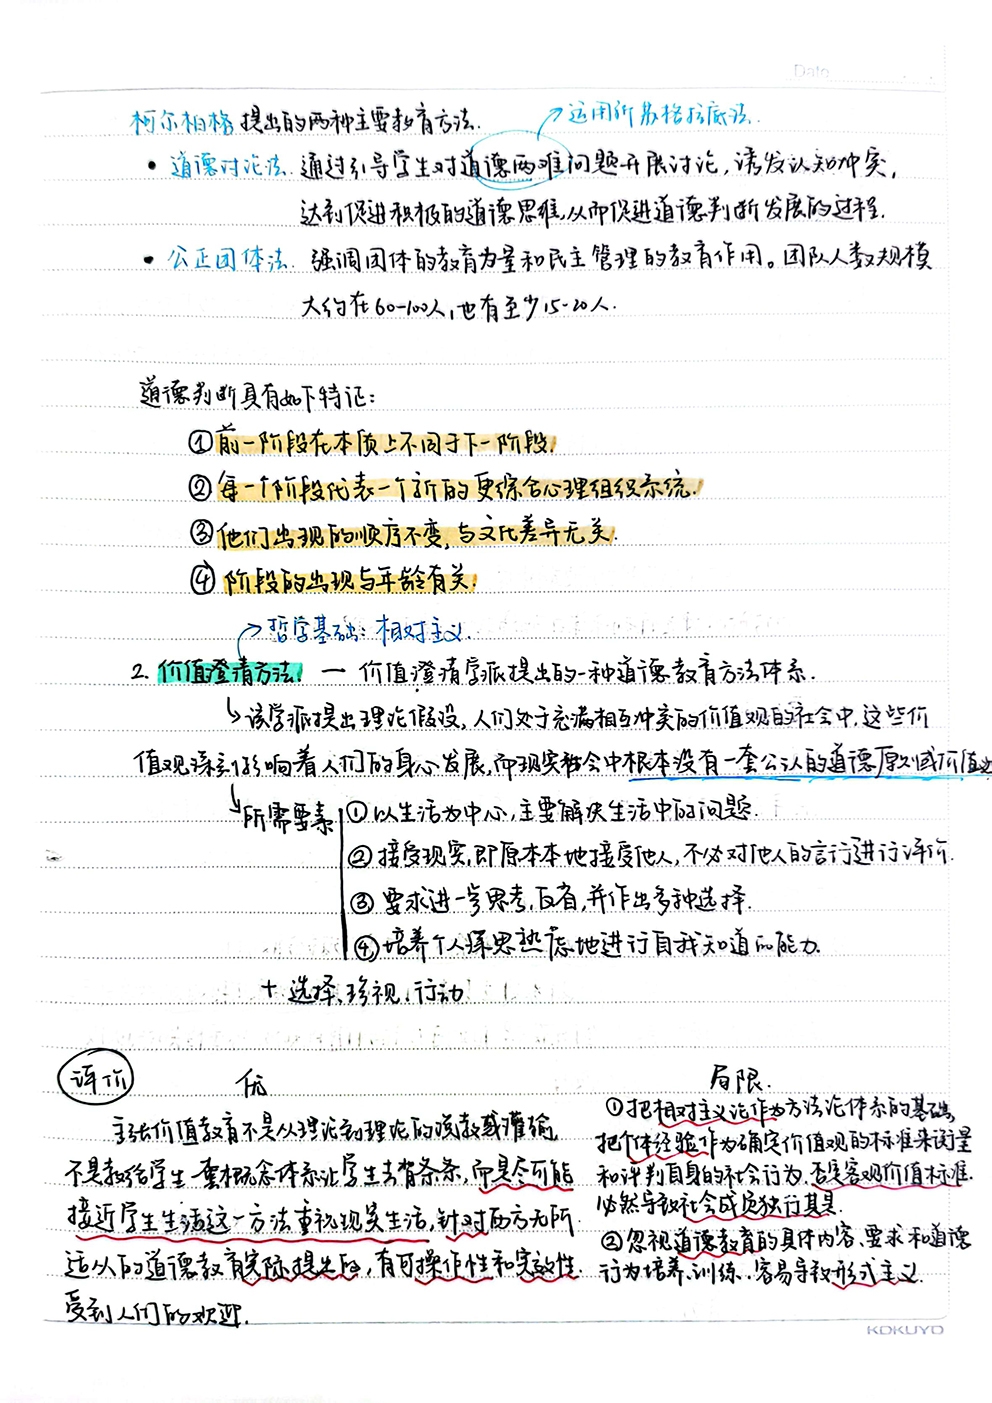 Date
柯尔柏格提出的两种主要教育方法.
运用所苏格拉底法.
• 道德讨论法. 通过引导学生对道德两难问题开展讨论,诱发认知冲突,
达到促进积极的道德思维,从而促进道德判断发展的过程.
• 公正团体法. 强调团体的教育力量和民主管理的教育作用。团队人数规模
大约在60-100人,也有至少15-20人.
道德判断具有如下特证:
①前一阶段在本质上不同于下一阶段.
②每一个阶段代表一个新的更综合心理组织系统.
③他们出现的顺序不变,与文化差异无关.
④阶段的出现与年龄有关.
哲学基础: 相对主义.
2. 价值澄清方法. — 价值澄清学派提出的一种道德教育方法体系.
该学派提出理论假设,人们处于充满相互冲突的价值观的社会中,这些价
值观深刻影响着人们的身心发展,而现实社会中根本没有一套公认的道德原则或价值
所需要素
①以生活为中心,主要解决生活中的问题.
②接受现实,即原本本地接受他人,不必对他人的言行进行评价.
③要求进一步思考,反省,并作出多种选择.
④培养个人深思熟虑地进行自我知道的能力.
+ 选择、珍视、行动
评价
优
局限.
主张价值教育不是从理论到理论的说教或灌输
不是教给学生一套概念体系让学生去背条条,而是尽可能
接近学生生活这一方法重视现实生活,针对西方无所
适从的道德教育实际提出的,有可操作性和实效性.
受到人们的欢迎.
①把相对主义论作为方法论体系的基础,
把个体经验作为确定价值观的标准来衡量
和评判自身的社会行为,否定客观价值标准.
必然导致社会成员独行其是.
②忽视道德教育的具体内容、要求和道德
行为培养、训练、容易导致形式主义.
KOKUYO